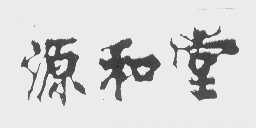 源和堂